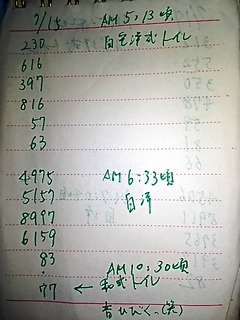 7/15 AM 5:13頃
230 自宅洋式トイレ
616
397
816
57
63
4975 AM 6:33頃
5157 自洋
8997
6159
83 AM 10:30頃
77 ← 和式トイレ
音ひびく(笑)